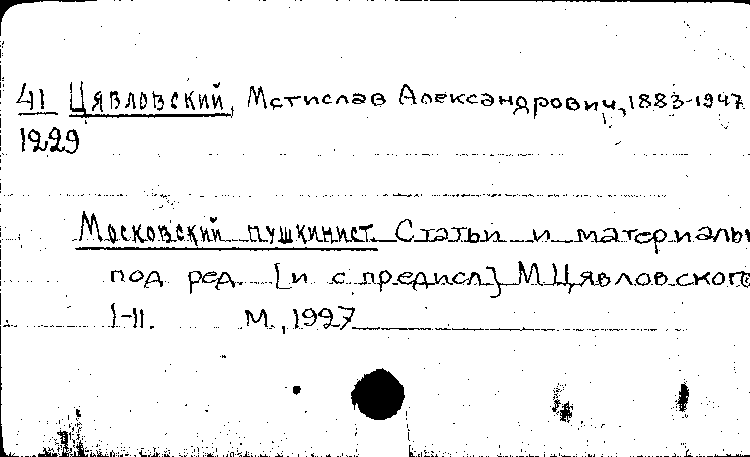 41 Цявловский, Мстислав Александрович, 1883-1947
1229
Московский пушкинист. Статьи и материалы
под ред. [и с предисл] М.Цявловского
I-II. М., 1927